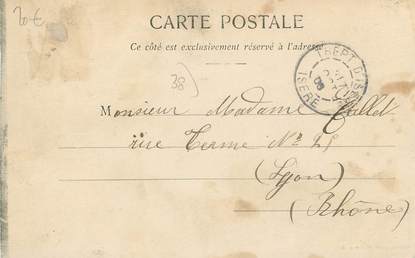 20 €
CARTE POSTALE
Ce côté est exclusivement réservé à l'adresse
TREPT D'ISÈRE
ISERE
38)
Monsieur Madame
rue Terme N° 25
(Lyon)
(Rhône)